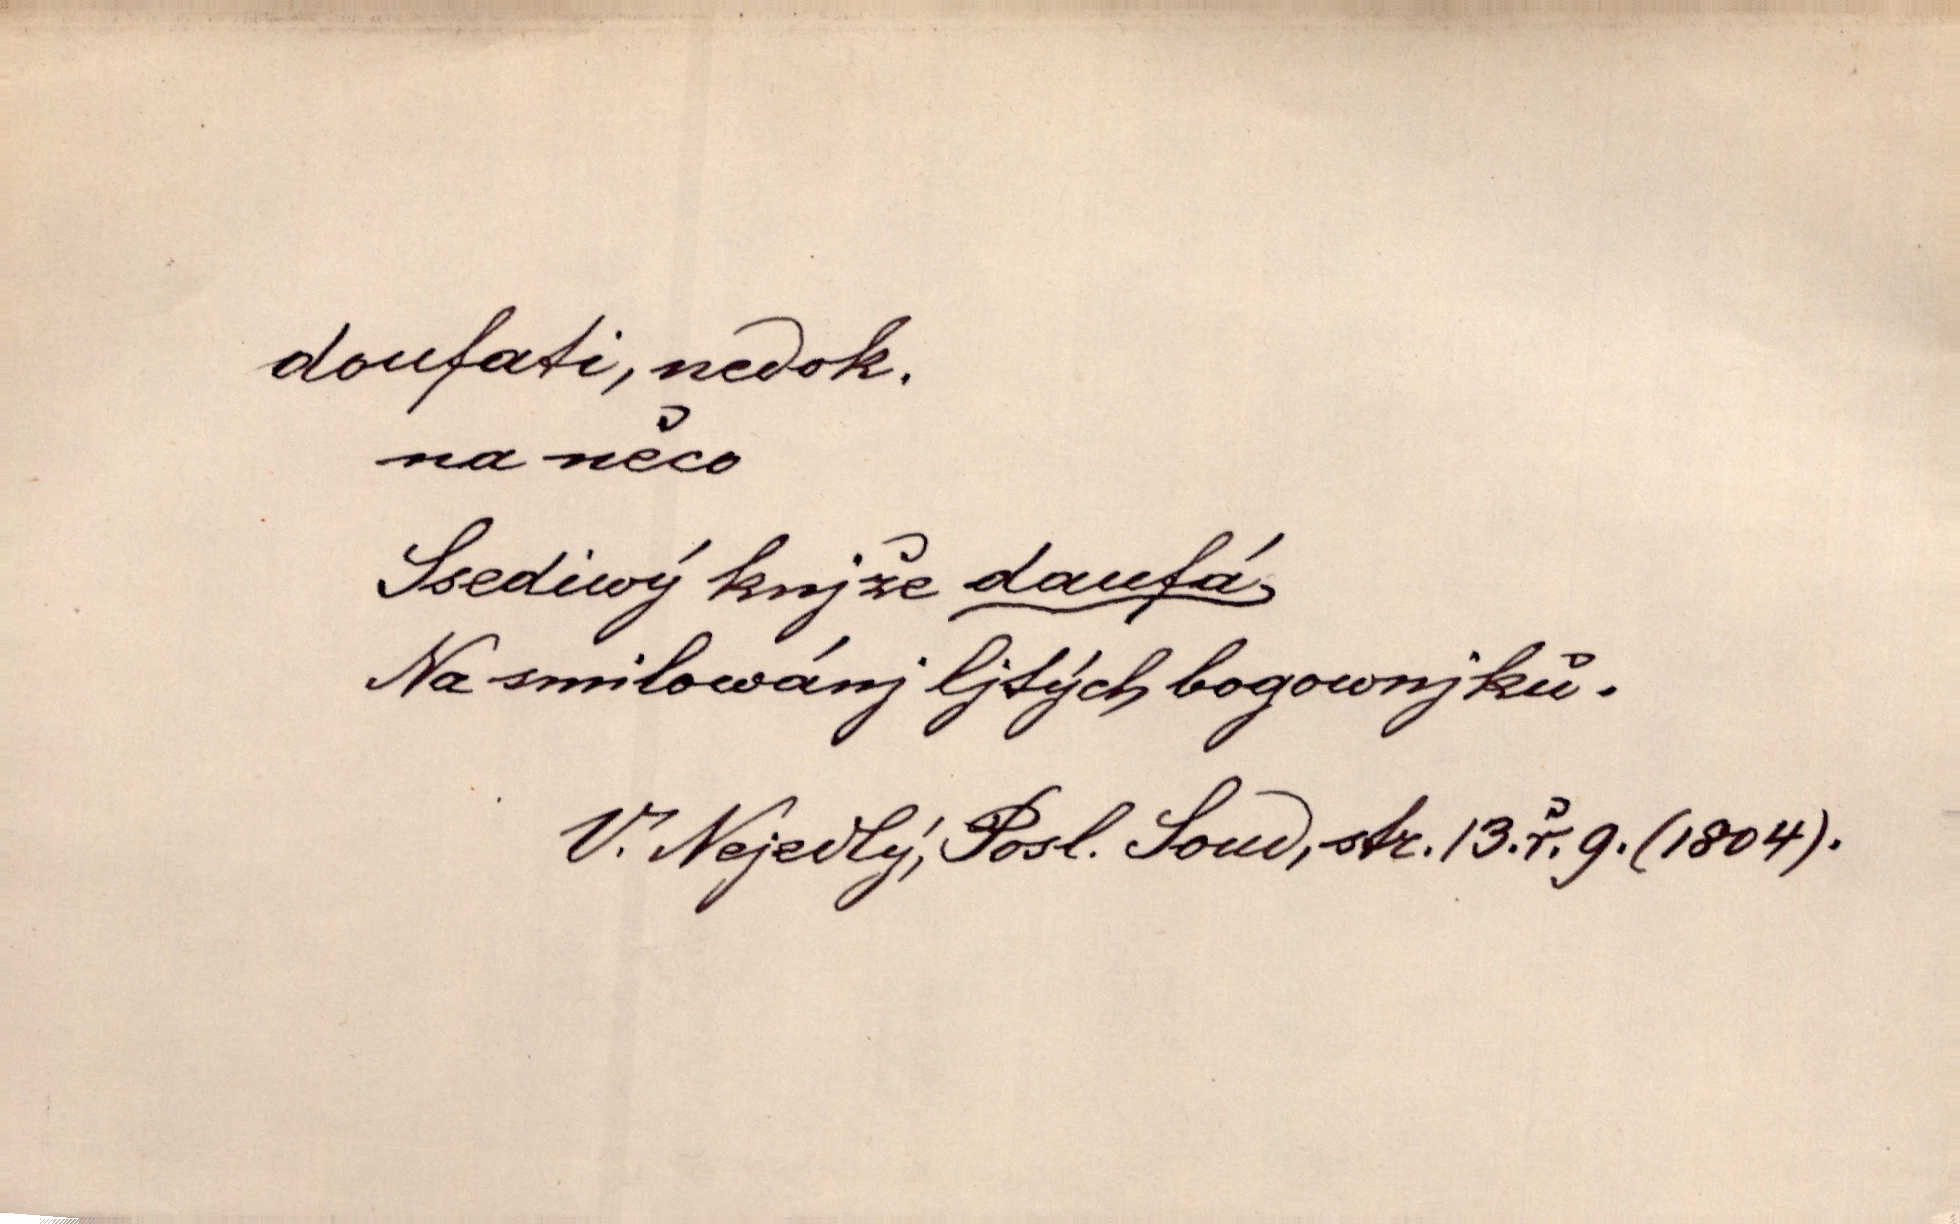 doufati, nedok.
na něco
Ssediwý knjže daufá
Na smilowánj ljtých bogownjků.
V. Nejedlý, Posl. Soud, str. 13. ř. 9. (1804).